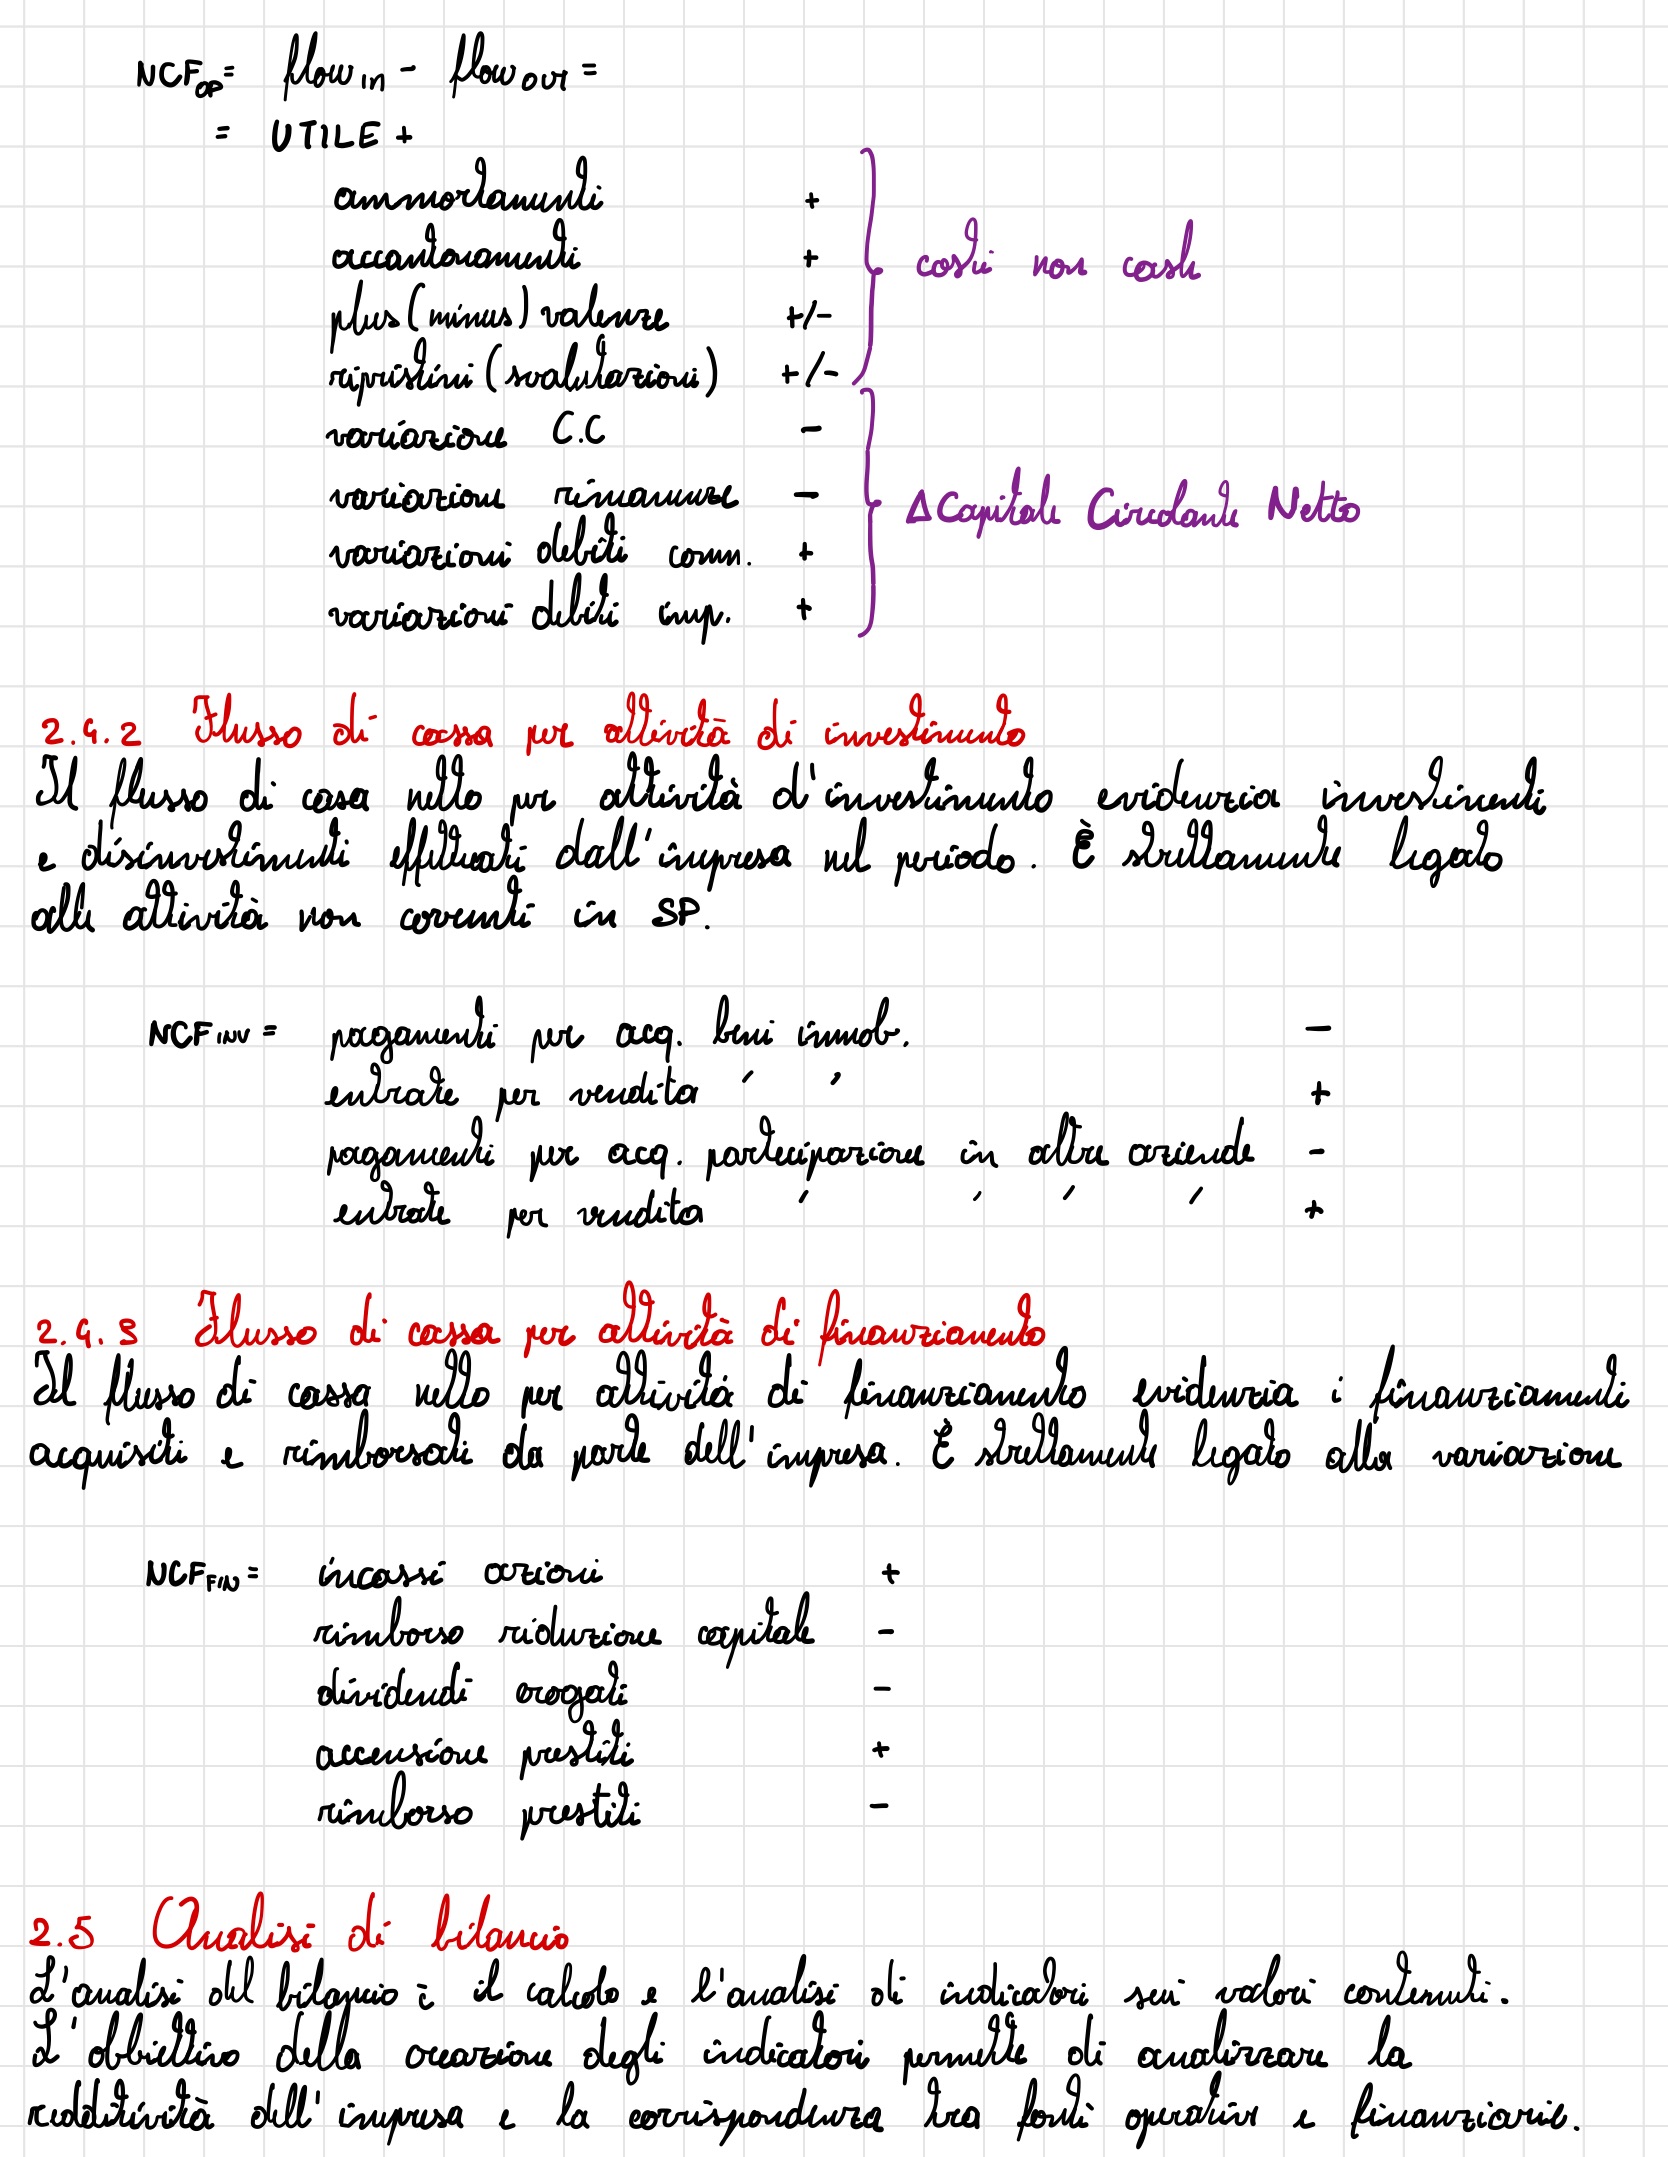 NCF_OP = flow in - flow out =
= UTILE +
ammortamenti +
accantonamenti +
plus (minus) valenze +/-
ripristini (svalutazioni) +/-
costi non cash
variazione C.C -
variazione rimanenze -
variazioni debiti comm. +
variazioni debiti imp. +
Δ Capitale Circolante Netto
2.4.2 Flusso di cassa per attività di investimento
Il flusso di casa netto per attività d'investimento evidenzia investimenti
e disinvestimenti effettuati dall'impresa nel periodo. È strettamente legato
alle attività non correnti in SP.
NCF INV = pagamenti per acq. beni immob. -
entrate per vendita ′ ′ +
pagamenti per acq. partecipazione in altre aziende -
entrate per vendita ′ ′ ′ ′ +
2.4.3 Flusso di cassa per attività di finanziamento
Il flusso di cassa netto per attività di finanziamento evidenzia i finanziamenti
acquisiti e rimborsati da parte dell'impresa. È strettamente legato alla variazione
NCF FIN = incassi azioni +
rimborso riduzione capitale -
dividendi erogati -
accensione prestiti +
rimborso prestiti -
2.5 Analisi di bilancio
L'analisi del bilancio è il calcolo e l'analisi di indicatori sui valori contenuti.
L'obbiettivo della creazione degli indicatori permette di analizzare la
redditività dell'impresa e la corrispondenza tra fonti operative e finanziarie.